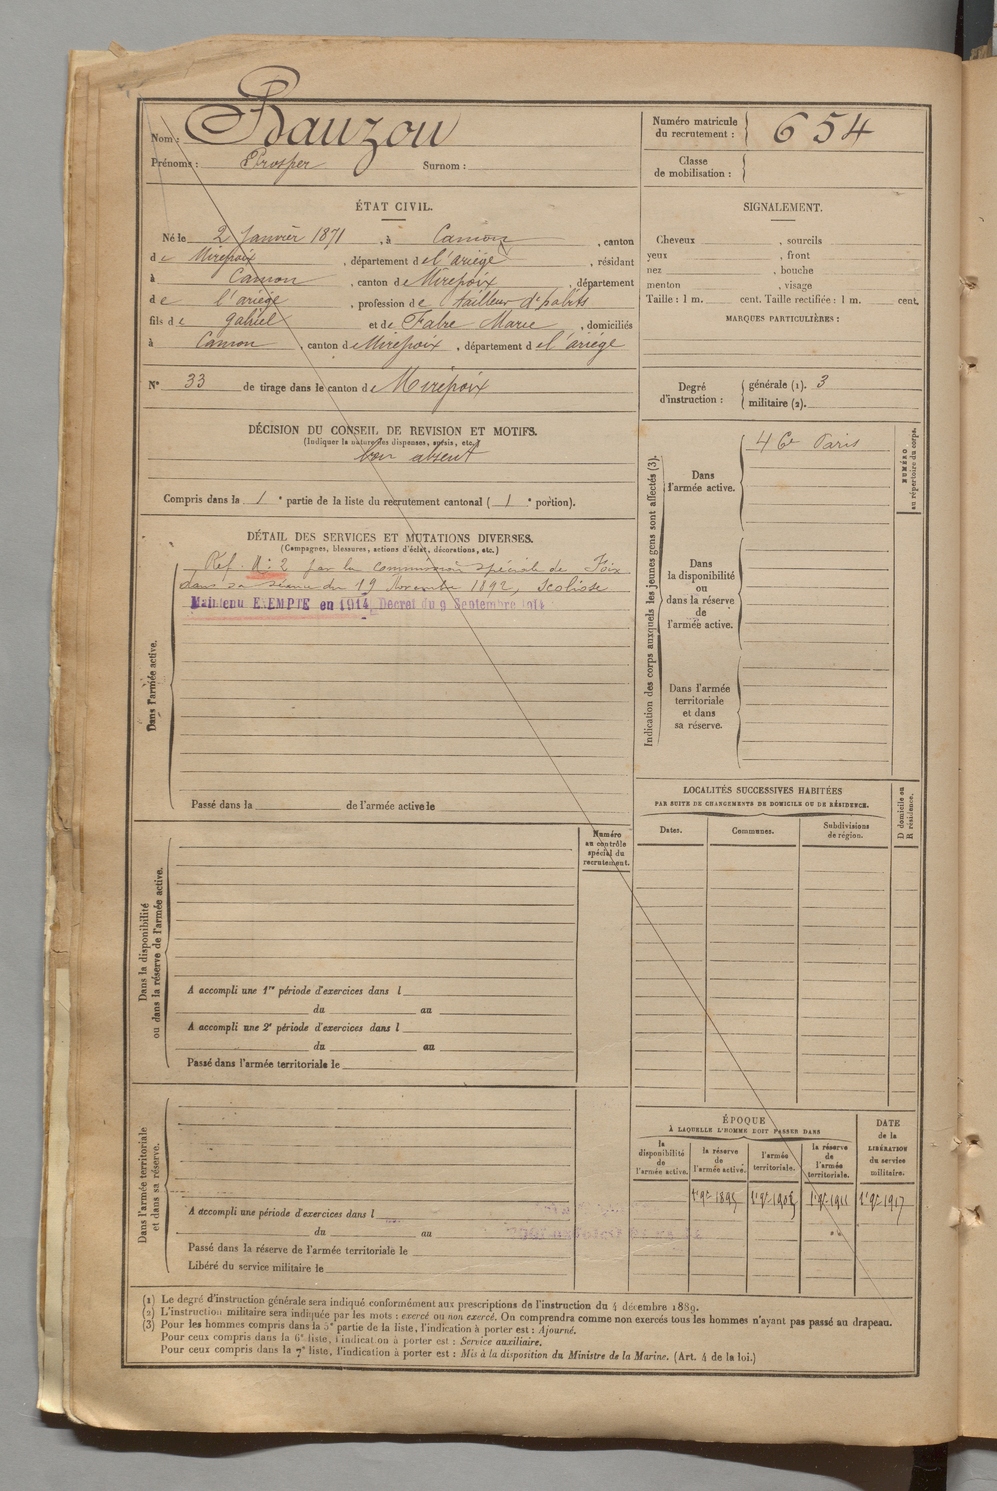 Nom : Bauzou
Prénoms : Prosper Surnom :
Numéro matricule du recrutement : 654
Classe de mobilisation :
ÉTAT CIVIL.
Né le 2 Janvier 1871, à Camon, canton
de Mirepoix, département de l'ariège, résidant
à Camon, canton de Mirepoix, département
de l'ariège, profession de tailleur d'habits
fils de Gabriel et de Fabre Marie, domiciliés
à Camon, canton de Mirepoix, département de l'ariège
N° 33 de tirage dans le canton de Mirepoix
SIGNALEMENT.
Cheveux , sourcils
yeux , front
nez , bouche
menton , visage
Taille : 1 m. cent. Taille rectifiée : 1 m. cent.
MARQUES PARTICULIÈRES :
Degré d'instruction : générale (1). 3
militaire (2).
DÉCISION DU CONSEIL DE REVISION ET MOTIFS.
(Indiquer la nature des dispenses, sursis, etc.)
bon absent
Compris dans la 1e partie de la liste du recrutement cantonal (1e portion).
DÉTAIL DES SERVICES ET MUTATIONS DIVERSES.
(Campagnes, blessures, actions d'éclat, décorations, etc.)
Réf. N: 2 par la commission spéciale de Foix
dans sa séance du 19 Novembre 1892, Scoliose
Maintenu EXEMPTE en 1914, Décret du 9 Septembre 1914
Dans l'armée active.
Passé dans la de l'armée active le
Indication des corps auxquels les jeunes gens sont affectés (3).
Dans l'armée active.
4 Cie Paris
Dans la disponibilité ou dans la réserve de l'armée active.
Dans l'armée territoriale et dans sa réserve.
NUMÉRO au répertoire du corps.
LOCALITÉS SUCCESSIVES HABITÉES
PAR SUITE DE CHANGEMENTS DE DOMICILE OU DE RÉSIDENCE.
Dates. Communes. Subdivisions de région.
D domicile ou R résidence.
Numéro au contrôle spécial du recrutement.
Dans la disponibilité ou dans la réserve de l'armée active.
A accompli une 1re période d'exercices dans l
du au
A accompli une 2e période d'exercices dans l
du au
Passé dans l'armée territoriale le
Dans l'armée territoriale et dans sa réserve.
A accompli une période d'exercices dans l
du au
Passé dans la réserve de l'armée territoriale le
Libéré du service militaire le
ÉPOQUE
À LAQUELLE L'HOMME DOIT PASSER DANS
la disponibilité de l'armée active.
la réserve de l'armée active.
l'armée territoriale.
la réserve de l'armée territoriale.
DATE de la LIBÉRATION du service militaire.
1911 1917
(1) Le degré d'instruction générale sera indiqué conformément aux prescriptions de l'instruction du 4 décembre 1889.
(2) L'instruction militaire sera indiquée par les mots : exercé ou non exercé. On comprendra comme non exercés tous les hommes n'ayant pas passé au drapeau.
(3) Pour les hommes compris dans la 5e partie de la liste, l'indication à porter est : Ajourné.
Pour ceux compris dans la 6e liste, l'indication à porter est : Service auxiliaire.
Pour ceux compris dans la 7e liste, l'indication à porter est : Mis à la disposition du Ministre de la Marine. (Art. 4 de la loi.)